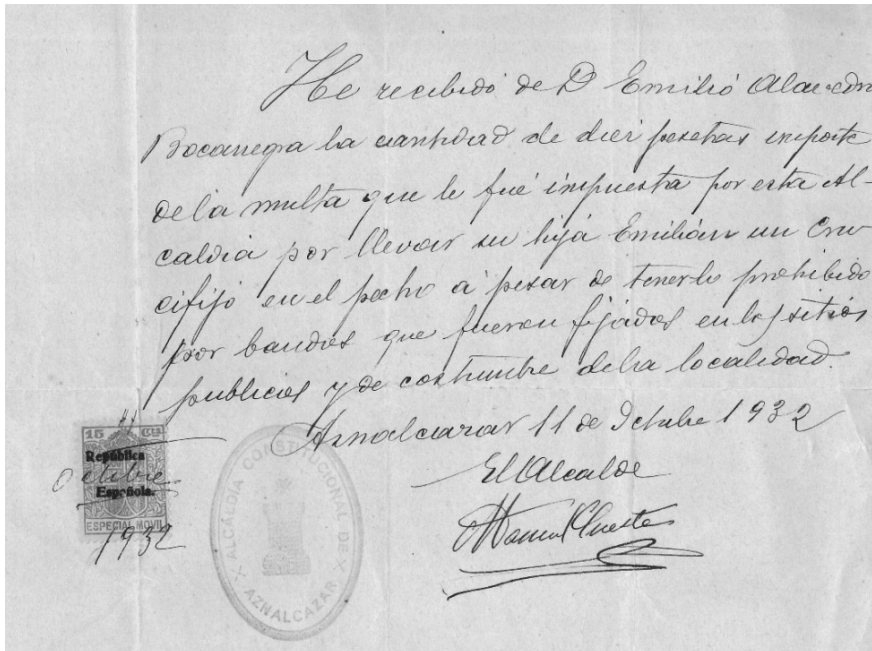 He recibido de D Emilio Alarcón
Bocanegra la cantidad de diez pesetas importe
de la multa que le fué impuesta por esta Al-
caldia por llevar su hija Emilián un Cru
cifijo en el pecho á pesar de tenerlo prohibido
por bandos que fueron fijados en los sitios
publicos y de costumbre de la localidad.
Aznalcazar 11 de Octubre 1932
El Alcalde
Manuel
15 CTS
11
República
Octubre
Española.
ESPECIAL MOVIL
1932
ALCALDÍA CONSTITUCIONAL DE
AZNALCAZAR